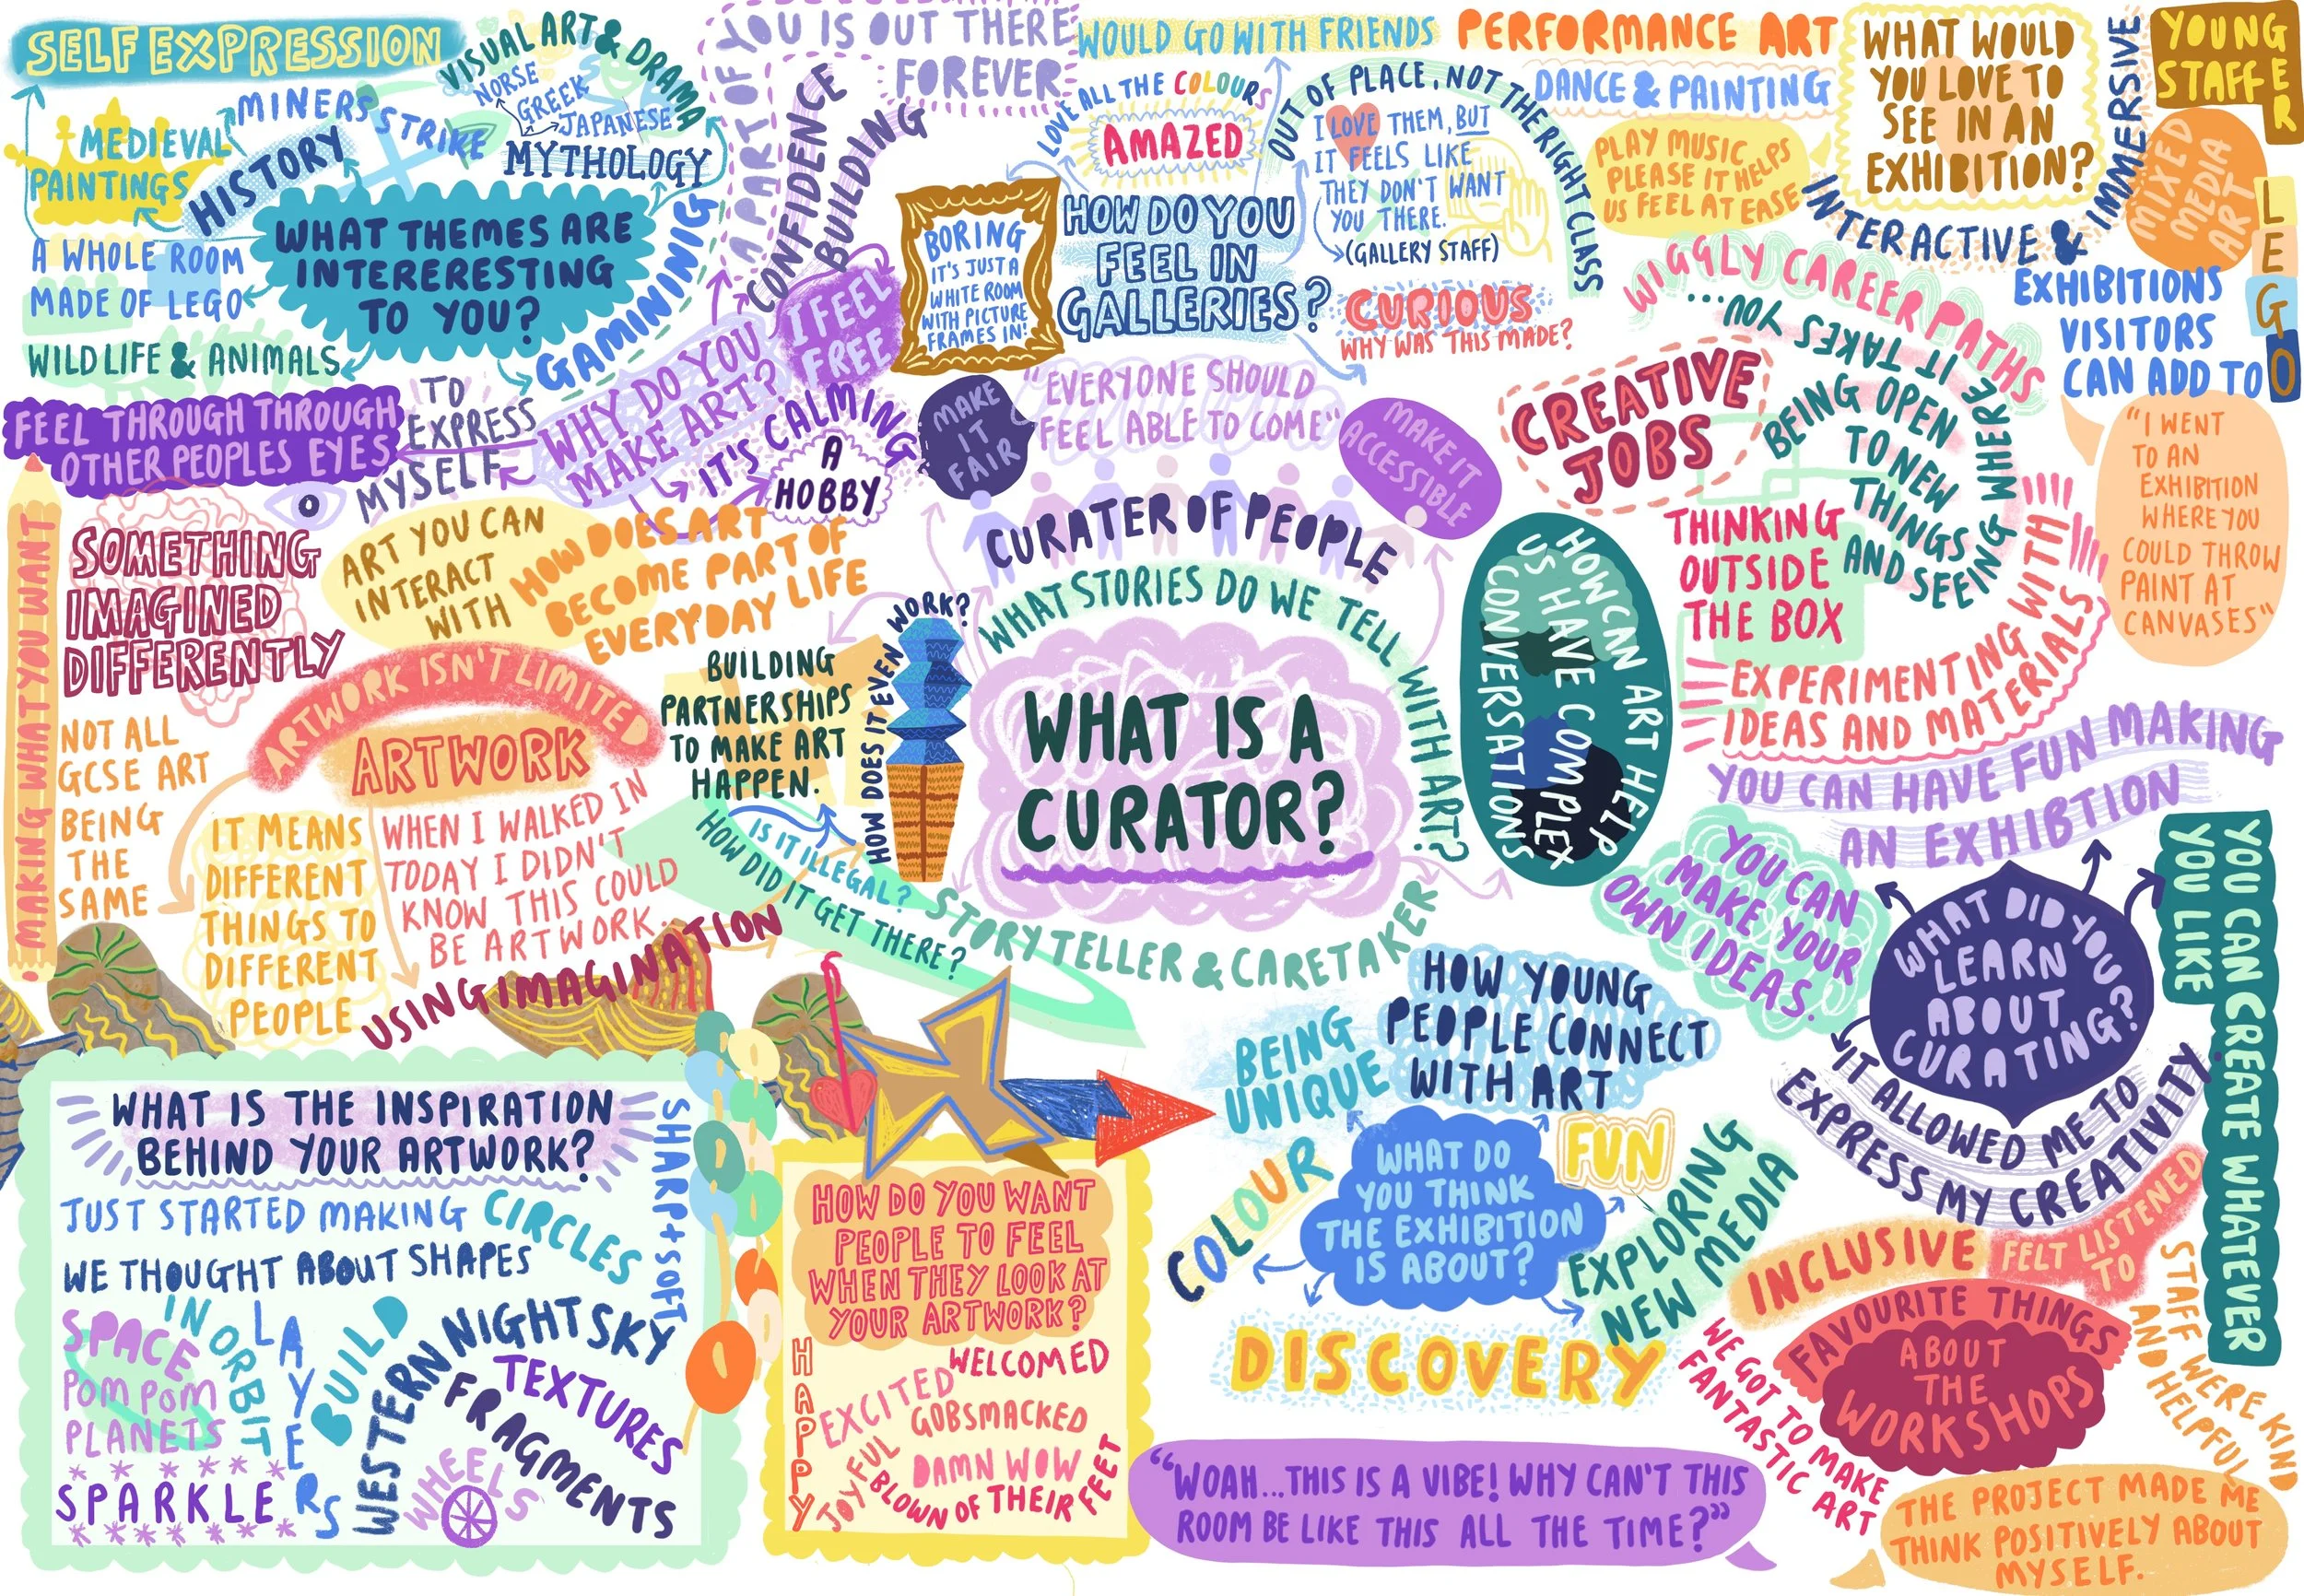 SELF EXPRESSION
VISUAL ART & DRAMA
MINERS STRIKE
NORSE
GREEK
JAPANESE
MYTHOLOGY
MEDIEVAL
PAINTINGS
HISTORY
WHAT THEMES ARE
INTERERESTING
TO YOU?
A WHOLE ROOM
MADE OF LEGO
WILDLIFE & ANIMALS
GAMINNIG
A PART OF YOU IS OUT THERE
FOREVER
CONFIDENCE
BUILDING
I FEEL
FREE
WHY DO YOU
MAKE ART?
IT'S CALMING
A
HOBBY
TO
EXPRESS
MYSELF
FEEL THROUGH THROUGH
OTHER PEOPLES EYES
WOULD GO WITH FRIENDS
LOVE ALL THE COLOURS
AMAZED
OUT OF PLACE, NOT THE RIGHT CLASS
I LOVE THEM, BUT
IT FEELS LIKE
THEY DON'T WANT
YOU THERE.
(GALLERY STAFF)
BORING
IT'S JUST A
WHITE ROOM
WITH PICTURE
FRAMES IN!
HOW DO YOU
FEEL IN
GALLERIES?
CURIOUS
WHY WAS THIS MADE?
PERFORMANCE ART
DANCE & PAINTING
PLAY MUSIC
PLEASE IT HELPS
US FEEL AT EASE
WHAT WOULD
YOU LOVE TO
SEE IN AN
EXHIBITION?
INTERACTIVE & IMMERSIVE
YOUNG
STAFF
ER
MIXED
MEDIA
ART
LEGO
EXHIBITIONS
VISITORS
CAN ADD TO
"I WENT
TO AN
EXHIBITION
WHERE YOU
COULD THROW
PAINT AT
CANVASES"
WIGGLY CAREER PATHS
AND SEEING WHERE IT TAKES YOU...
CREATIVE
JOBS
BEING OPEN
TO NEW
THINGS
THINKING
OUTSIDE
THE BOX
EXPERIMENTING WITH
IDEAS AND MATERIALS
MAKE
IT
FAIR
"EVERYONE SHOULD
FEEL ABLE TO COME"
MAKE IT
ACCESSIBLE
CURATER OF PEOPLE
WHAT STORIES DO WE TELL WITH ART?
WHAT IS A
CURATOR?
STORYTELLER & CARETAKER
HOW CAN ART HELP
US HAVE COMPLEX
CONVERSATIONS
MAKING WHAT YOU WANT
SOMETHING
IMAGINED
DIFFERENTLY
ART YOU CAN
INTERACT
WITH
HOW DOES ART
BECOME PART OF
EVERYDAY LIFE
ARTWORK ISN'T LIMITED
ARTWORK
NOT ALL
GCSE ART
BEING
THE
SAME
IT MEANS
DIFFERENT
THINGS TO
DIFFERENT
PEOPLE
WHEN I WALKED IN
TODAY I DIDN'T
KNOW THIS COULD
BE ARTWORK...
USING IMAGINATION
BUILDING
PARTNERSHIPS
TO MAKE ART
HAPPEN.
HOW DOES IT EVEN WORK?
IS IT ILLEGAL?
HOW DID IT GET THERE?
YOU CAN HAVE FUN MAKING
AN EXHIBTION
YOU CAN
MAKE YOUR
OWN IDEAS.
WHAT DID YOU
LEARN
ABOUT
CURATING?
IT ALLOWED ME TO
EXPRESS MY CREATIVITY
YOU CAN CREATE WHATEVER
YOU LIKE
WHAT IS THE INSPIRATION
BEHIND YOUR ARTWORK?
JUST STARTED MAKING CIRCLES
WE THOUGHT ABOUT SHAPES
SHARP + SOFT
SPACE
POM POM
PLANETS
IN ORBIT
LAYERS
BUILD
WESTERN
NIGHT SKY
TEXTURES
FRAGMENTS
WHEELS
SPARKLE
HOW DO YOU WANT
PEOPLE TO FEEL
WHEN THEY LOOK AT
YOUR ARTWORK?
HAPPY
WELCOMED
EXCITED
GOBSMACKED
JOYFUL
DAMN WOW
BLOWN OF THEIR FEET
BEING
UNIQUE
HOW YOUNG
PEOPLE CONNECT
WITH ART
COLOUR
WHAT DO
YOU THINK
THE EXHIBITION
IS ABOUT?
FUN
EXPLORING
NEW MEDIA
DISCOVERY
"WOAH...THIS IS A VIBE! WHY CAN'T THIS
ROOM BE LIKE THIS ALL THE TIME?"
INCLUSIVE
FELT LISTENED
TO
FAVOURITE THINGS
ABOUT
THE
WORKSHOPS
STAFF WERE KIND
AND HELPFUL
WE GOT TO MAKE
FANTASTIC ART
THE PROJECT MADE ME
THINK POSITIVELY ABOUT
MYSELF.